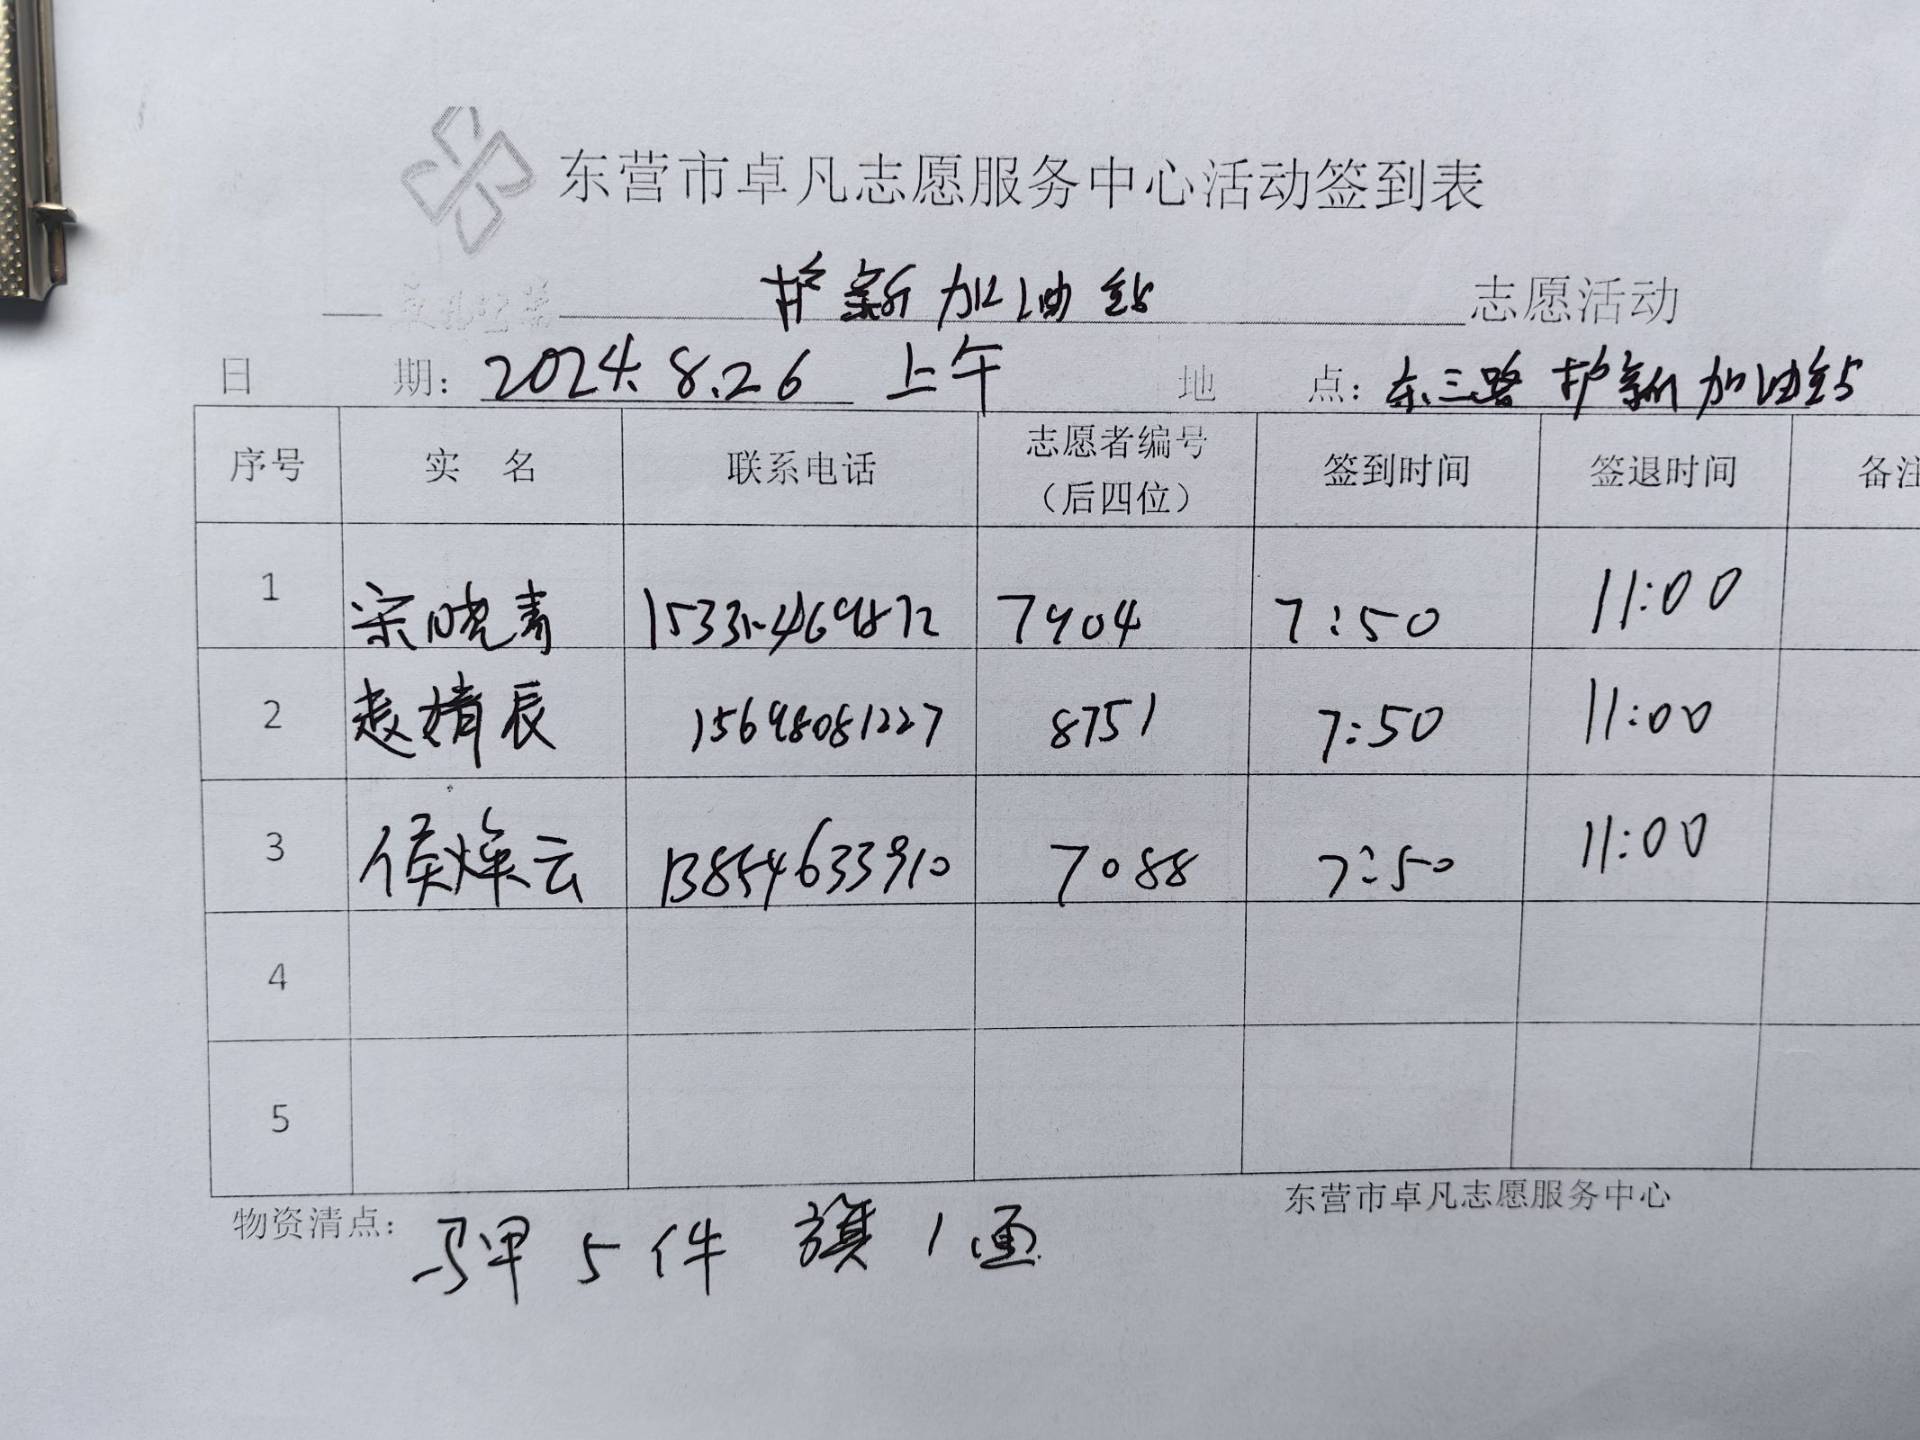 东营市卓凡志愿服务中心活动签到表
护新加油站 志愿活动
日 期：2024.8.26 上午 地 点：东三路护新加油站
序号 实 名 联系电话 志愿者编号（后四位） 签到时间 签退时间 备注
1 宋晓青 7904 7:50 11:00
2 赵婧辰 15698081227 8751 7:50 11:00
3 侯焕云 13854633910 7088 7:50 11:00
4
5
物资清点：马甲 5 件 旗 1 面
东营市卓凡志愿服务中心